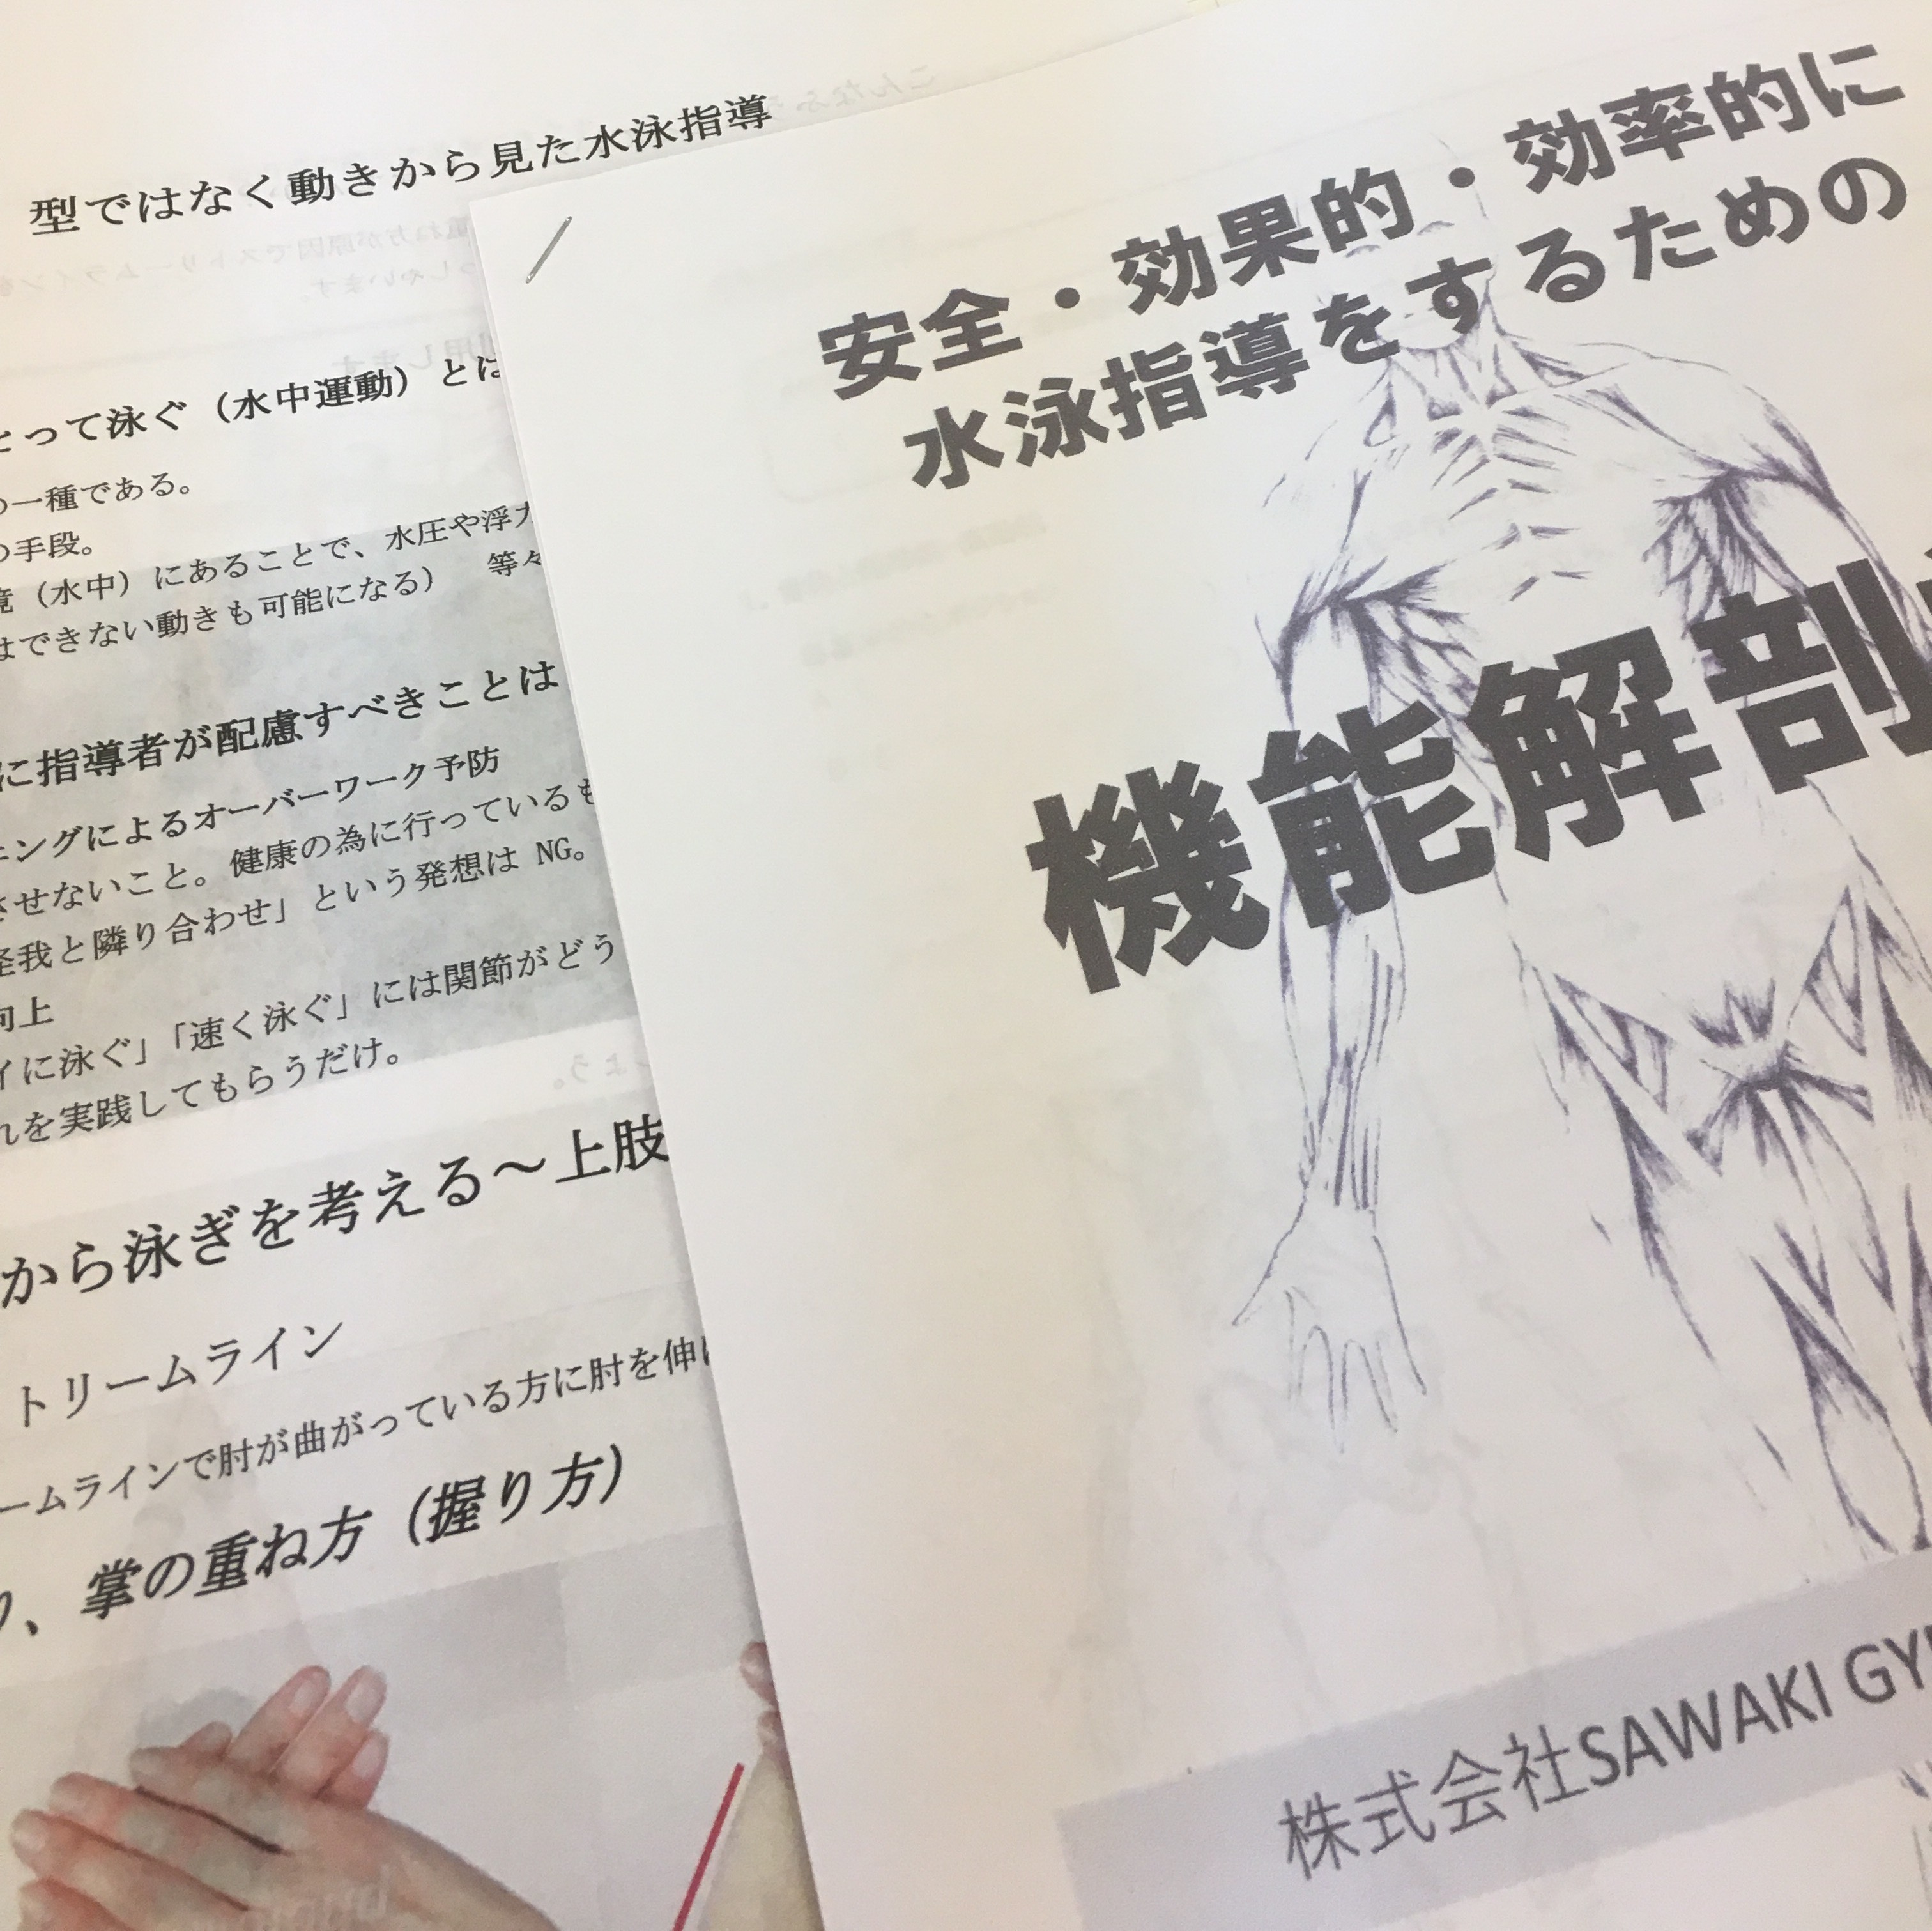 型ではなく動きから見た水泳指導
とって泳ぐ（水中運動）とは
の一種である。
の手段。
境（水中）にあることで、水圧や浮力
はできない動きも可能になる） 等々
に指導者が配慮すべきことは
ニングによるオーバーワーク予防
させないこと。健康の為に行っているも
怪我と隣り合わせ」という発想は NG。
向上
イに泳ぐ」「速く泳ぐ」には関節がどう
れを実践してもらうだけ。
から泳ぎを考える～上肢
トリームライン
ームラインで肘が曲がっている方に肘を伸
り、掌の重ね方（握り方）
安全・効果的・効率的に
水泳指導をするための
機能解剖
株式会社SAWAKI GY